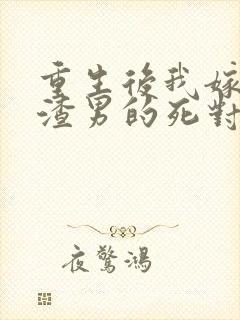 重生後我嫁
渣男的死對
夜驚鴻